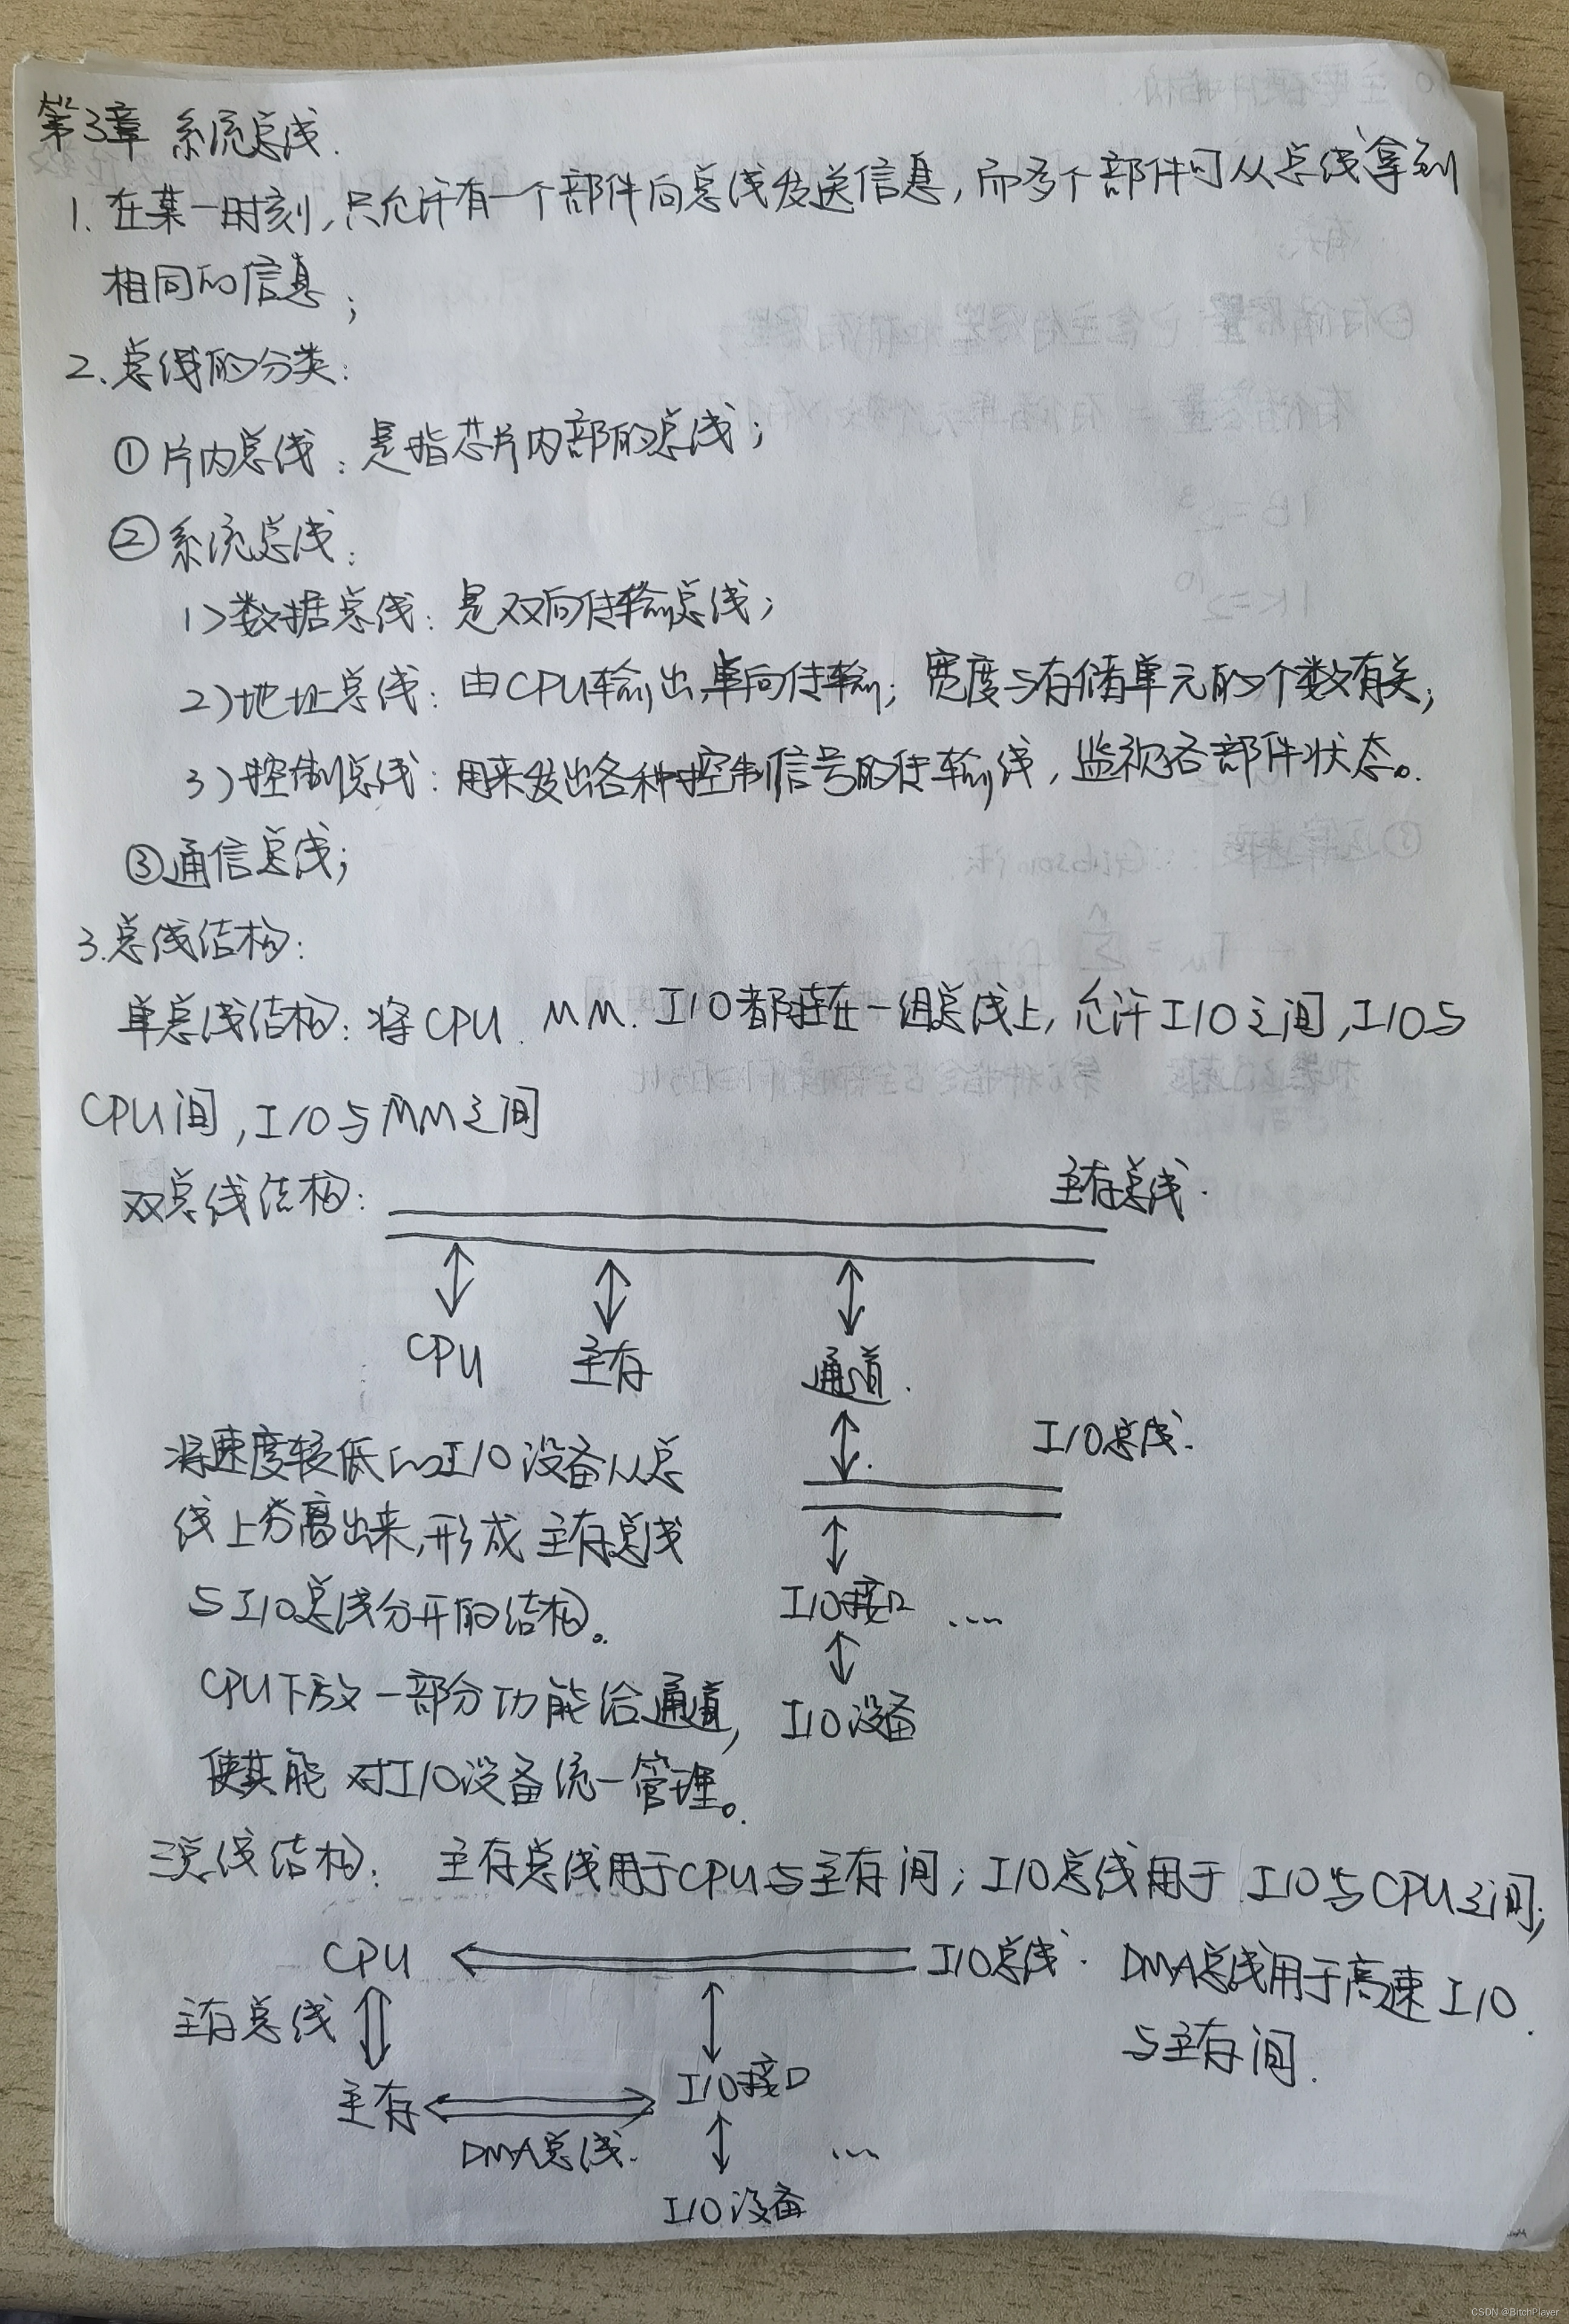 第3章 系统总线.
1. 在某一时刻,只允许有一个部件向总线发送信息,而多个部件可从总线拿到
相同的信息;
2、总线的分类:
①片内总线:是指芯片内部的总线;
②系统总线:
1>数据总线:是双向传输总线;
2)地址总线:由CPU输出,单向传输;宽度与存储单元的个数有关;
3)控制总线:用来发出各种控制信号的传输线,监视各部件状态。
③通信总线;
3.总线结构:
单总线结构:将CPU、MM、I/O都挂在一组总线上,允许I/O之间,I/O与
CPU间,I/O与MM之间
双总线结构: 主存总线.
CPU 主存 通道.
I/O总线.
将速度较低的I/O设备从总
线上分离出来,形成主存总线
与I/O总线分开的结构。
I/O接口 ....
CPU下放一部分功能给通道,
I/O设备
使其能对I/O设备统一管理。
三总线结构: 主存总线用于CPU与主存间;I/O总线用于I/O与CPU之间;
CPU I/O总线. DMA总线用于高速I/O
主存总线 与主存间.
主存 I/O接口
DMA总线. ...
I/O设备
CSDN @BitchPlayer